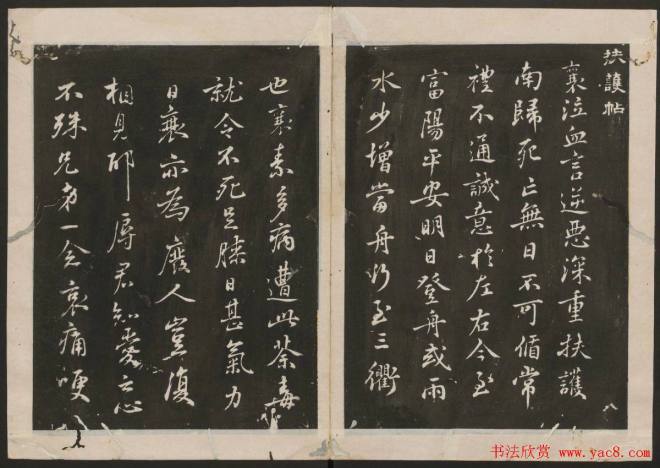 扶護帖
襄泣血言逆惡深重扶護
南歸死亡無日不可循常
禮不通誠意於左右今至
富陽平安明日登舟或雨
水少增當舟行至三衢
八
也襄素多病遭此荼毒
就令不死足膝日甚氣力
日衰亦為廢人豈復
相見邪辱君知愛之心
不殊兄弟一念哀痛哽
书法欣赏 www.yac8.com